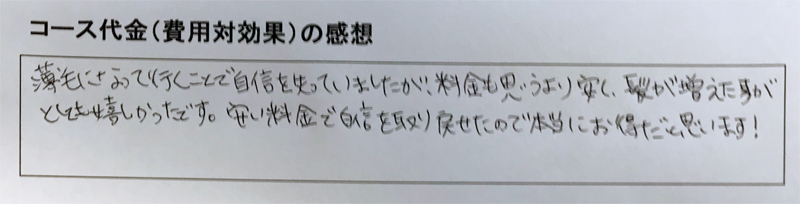 コース代金(費用対効果)の感想
薄毛になって行くことで自信を失っていましたが、料金も思うより安く、髪が増えた事が
とても嬉しかったです。安い料金で自信を取り戻せたので本当にお得だと思います!